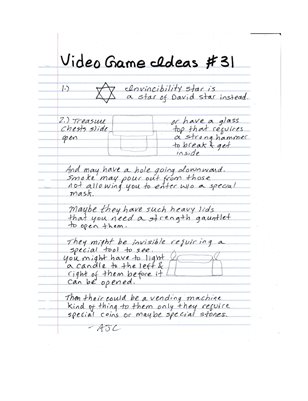 Video Game Ideas #31
1.) Invincibility Star is
a star of David star instead.
2.) Treasure or have a glass
Chests slide top that requires
open a strong hammer
to break & get
inside
And may have a hole going downward.
Smoke may pour out from those
not allowing you to enter w/o a special
mask.
Maybe they have such heavy lids
that you need a strength gauntlet
to open them.
They might be invisible requiring a
special tool to see.
You might have to light
a candle to the left &
right of them before it
can be opened.
Then their could be a vending machine
kind of thing to them only they require
special coins or maybe special stones.
- AJC